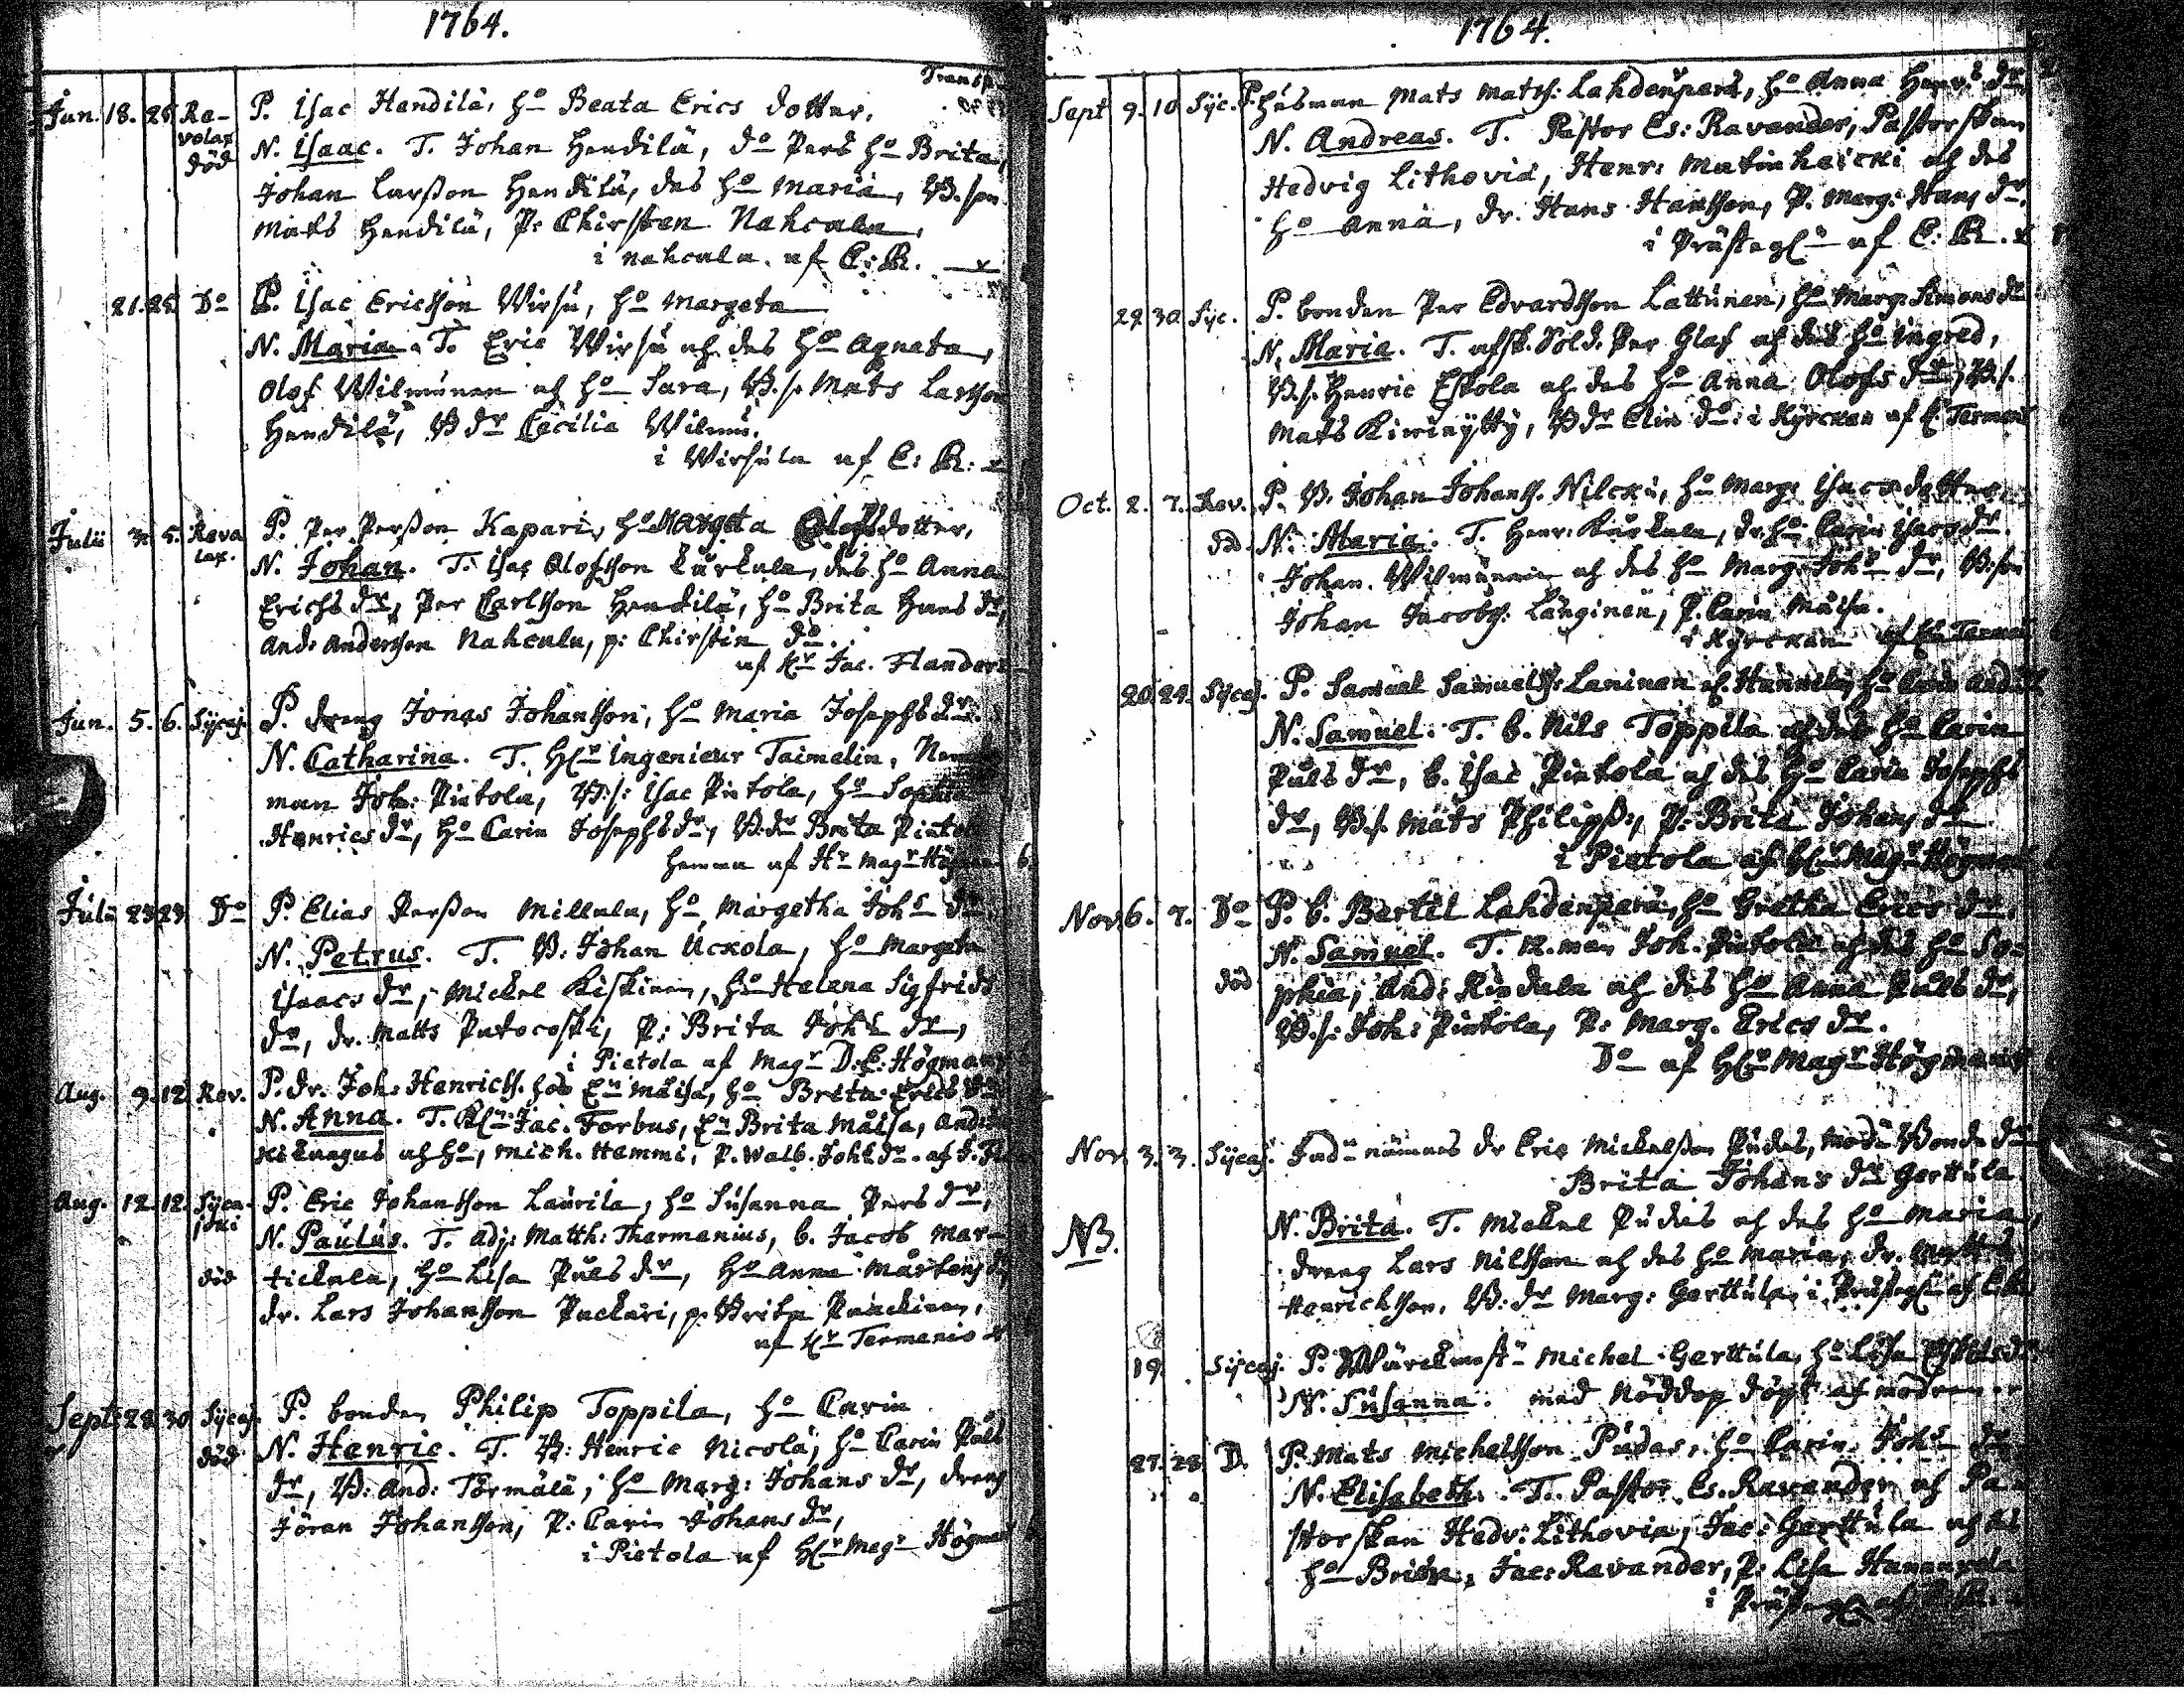 1764.
Transp.
Jun. 18. 25 Re- P. Isac Handilä, ho Beata Erics dotter.
volax N. Isaac. T. Johan Hendilä, do Pers ho Brita,
död
Johan Larsson Hendilä, des ho Maria, B. son
Mats Hendilä, P. Chirsten Nahcala,
i Nahcula. af E: R.
21. 25 Do P. Isac Ericsson Wirsu, ho Margeta
N. Maria. T. Eric Wirsu och des ho Agneta,
Olof Wilmunen och ho Sara, B. s. Mats Larsson
Hendilä, B dr Cecilia Wilmu.
i Wirsula af E: R:
Julii 3. 5. Reva P. Per Persson Kapari, ho Margeta Olofsdotter,
lax. N. Johan. T. Isac Olofsson Kurkula, des ho Anna
Erichs dr, Per Carlsson Hendilä, ho Brita Hans dr,
And: Andersson Nahcula, p: Chirstin do.
af Hr Jac. Flander
Jun. 5. 6. Sycaj. P. dreng Jonas Johansson, ho Maria Josephs dr.
N. Catharina. T. Hr Ingenieur Taimelin, Nemde
man Joh: Pietola, B: s: Isac Pietola, ho Sophia
Henrics dr, ho Carin Josephs dr, B: dr Brita Pietola
hemma af Hr Magr Högman
Julii 23 23 Do P. Elias Persson Millula, ho Margetha Johs dr
N. Petrus. T. B. Johan Uckola, ho Margeta
Isaacs dr, Mickel Kiskinen, ho Helena Sigfrids
dr, dr. Matts Putocoski, P: Brita Johs dr,
i Pietola af Magr D. E. Högman
Aug. 9. 12 Rev. P. dr. Joh: Henricss. hos En Måisa, ho Brita Erics dr
N. Anna. T. Jac. Forbus, En Brita Måisa, And:
och ho, Mich. Hemmi, P. Walb. Johs dr. af J. Fl
Aug. 12 12. Syca- P. Eric Johansson Laurila, ho Susanna Pers dr,
jski N. Paulus. T. Adj: Matth: Tharmanius, b. Jacob Mar-
död tickala, ho Lisa Påls dr, ho Anna Mårtens dr
dr. Lars Johansson Puckari, p. Brita Paackinen,
af Hr Termanio
Sept: 28 30 Sycaj. P. bonden Philip Toppila, ho Carin
död N. Henric. T. B: Henric Nicola, ho Carin Påls
dr, B: And: Törmälä, ho Marg: Johans dr, dreng
Jöran Johansson, P: Carin Johans dr,
i Pietola af Hr Magr Högman
1764.
Sept 9. 10 Syc. P. husman Mats Matss: Lahdenperä, ho Anna Henr:s dr
N. Andreas. T. Pastor Es: Ravander, Pastorskan
Hedvig Lithovia, Henr: Matinheicki och des
ho Anna, dr. Hans Hansson, P. Marg: Hans dr.
i Prästegln af E: R.
29 30 Syc. P. bonden Per Edvardsson Lattunen, ho Marg: Simons dr
N. Maria. T. afsk. Sold. Per Glaf och des ho Ingred,
B. s. Henric Eskola och des ho Anna Olofs dr, B. s.
Mats Kiwinytty, B dr Elin do. i Kyrckan af E. Terman
Oct. 2. 7. Rev. P. B. Johan Johanss. Nilcku, ho Marg: Isacs dotter
död N. Maria. T. Henr: Kurkula, dr. ho Carin Isacs dr.
Johan Wilmunen och des ho Marg. Johs dr, B: son
Johan Jacobss: Länginen, P. Carin Måisa.
i Kyrckan af Terman
20. 24. Sycaj. P. Samuel Samuelss: Laninen, ho Carin And: dr
N. Samuel. T. b. Nils Toppila och des ho Carin
Påls dr, b. Isac Pietola och des ho Carin Josephs
dr, B. s. Mats Philipss:, P: Brita Johans dr
i Pietola af Hr Magr Högman
Nov. 6. 7. Do P. b. Bertil Lahdenperä, ho Gretha Erics dr.
N. Samuel. T. N. man Joh. Pietola och des ho So-
död phia, And: Kindula och des ho Anna Påls dr,
B. s: Joh: Pietola, P: Marg. Erics dr.
Do af Hr Magr Högman
Nov. 3. 3. Sycaj. Fadn nämnes dr Eric Mickelsson Pudas, modn Bonde dr
Brita Johans dr Gerttula
NB. N. Brita. T. Mickel Pudas och des ho Maria,
dreng Lars Nilsson och des ho Maria, dr. Matts
Henrichsson, B: dr Marg: Gerttula, i Prästegln af E. R.
19. Sycaj. P. Michel Gerttula, ho Lisa
N. Susanna. med Nöddop döpt af modren
27. 28 D. P. Mats Michelsson Pudas, ho Carin Johs dr
N. Elisabeth. T. Pastor Es. Ravander och Pa-
storskan Hedv: Lithovia, Jac: Gerttula och des
ho Brita, Jac: Ravander, P: Lisa
i Prästegln af E. R.